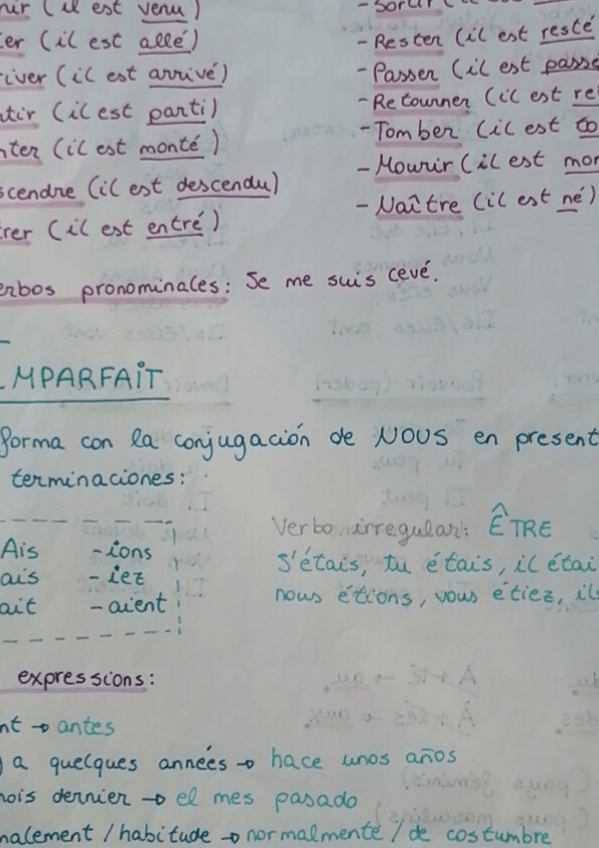 nir (il est venu)
er (il est allé)
river (il est arrivé)
rtir (il est parti)
nter (il est monté)
scendre (il est descendu)
rer (il est entré)
- Sortir (il
- Rester (il est resté
- Passer (il est passé
- Retourner (il est re
- Tomber (il est to
- Mourir (il est mor
- Naître (il est né)
erbos pronominales: Se me suis levé.
MPARFAIT
forma con la conjugación de NOUS en present
terminaciones:
Ais -ions
ais -iez
ait -aient
Verbo irregular: ÊTRE
S'étais, tu étais, il étai
nous étions, vous étiez, il
expressions:
nt → antes
a quelques années → hace unos años
mois dernier → el mes pasado
malement / habitude → normalmente / de costumbre